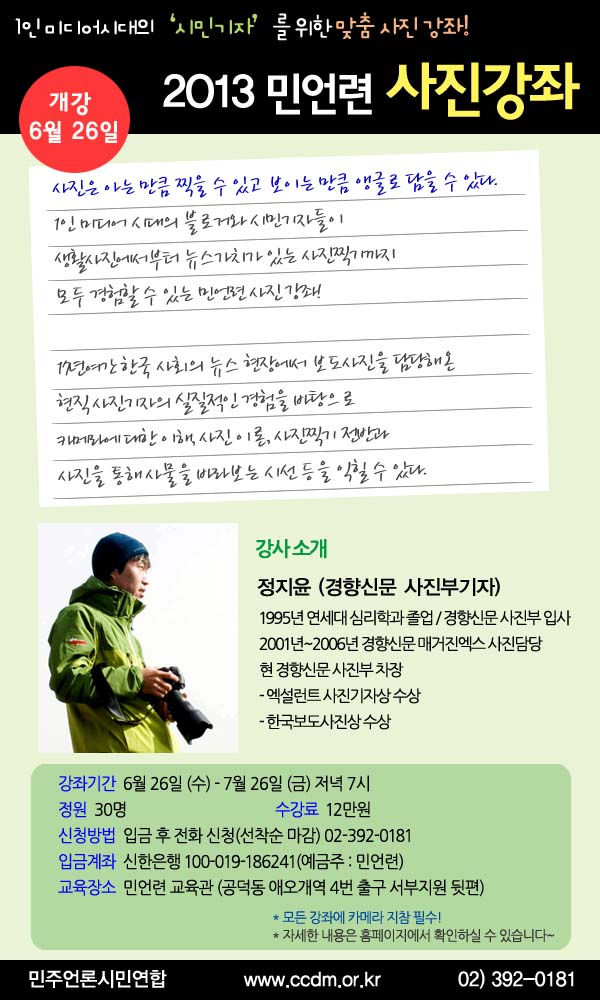 1인 미디어시대의 '시민기자' 를 위한 맞춤 사진 강좌!
개강
6월 26일
2013 민언련 사진강좌
사진은 아는 만큼 찍을 수 있고 보이는 만큼 앵글로 담을 수 있다.
1인 미디어 시대의 블로거와 시민기자들이
생활사진에서부터 뉴스가치가 있는 사진찍기까지
모두 경험할 수 있는 민언련 사진 강좌!
17년여간 한국 사회의 뉴스 현장에서 보도사진을 담당해온
현직 사진기자의 실질적인 경험을 바탕으로
카메라에 대한 이해, 사진 이론, 사진찍기 전반과
사진을 통해 사물을 바라보는 시선 등을 익힐 수 있다.
강사 소개
정지윤 (경향신문 사진부기자)
1995년 연세대 심리학과 졸업 / 경향신문 사진부 입사
2001년~2006년 경향신문 매거진엑스 사진담당
현 경향신문 사진부 차장
- 엑설런트 사진기자상 수상
- 한국보도사진상 수상
강좌기간 6월 26일 (수) - 7월 26일 (금) 저녁 7시
정원 30명 수강료 12만원
신청방법 입금 후 전화 신청(선착순 마감) 02-392-0181
입금계좌 신한은행 100-019-186241(예금주 : 민언련)
교육장소 민언련 교육관 (공덕동 애오개역 4번 출구 서부지원 뒷편)
* 모든 강좌에 카메라 지참 필수!
* 자세한 내용은 홈페이지에서 확인하실 수 있습니다~
민주언론시민연합 www.ccdm.or.kr 02) 392-0181